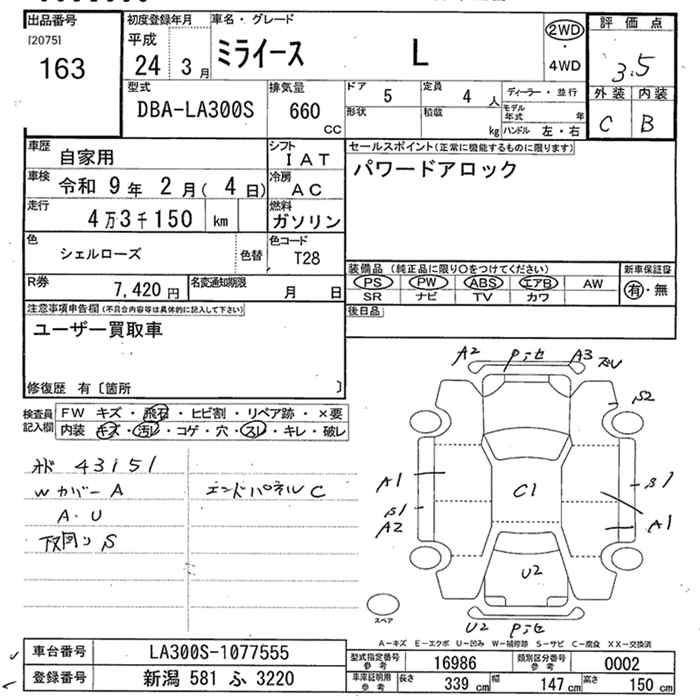 出品番号
[2075]
163
初度登録年月
平成
24 3月
車名・グレード
ミライース L
2WD
・
4WD
評価点
3.5
外装 内装
C B
型式
DBA-LA300S
排気量
660
CC
ドア
5
定員
4 人
形状
積載
kg
ディーラー・並行
モデル年式 年
ハンドル 左・右
車歴
自家用
シフト
IAT
車検
令和 9年 2月( 4日)
冷房
AC
走行
4万3千150 km
燃料
ガソリン
色
シェルローズ
色替
色コード
T28
R券
7,420円
名変通知期限
月 日
セールスポイント(正常に機能するものに限ります)
パワードアロック
装備品 (純正品に限り○をつけてください)
新車保証書
PS PW ABS エアB AW
SR ナビ TV カワ
有・無
後日品
注意事項申告欄(不具合内容等は具体的に記入して下さい)
ユーザー買取車
修復歴 有〔箇所 〕
検査員記入欄
FW キズ・飛石・ヒビ割・リペア跡・×要
内装 キズ・汚レ・コゲ・穴・スレ・キレ・破レ
43151
Wカバー A
A・U
下回り S
エンドパネル C
A2
A3
S2
A1
S1
A2
C1
S1
A1
U2
U2
スペア
A-キズ E-エクボ U-凹み W-補修跡 S-サビ C-腐食 XX-交換済
車台番号
LA300S-1077555
登録番号
新潟 581 ふ 3220
型式指定番号
参考
16986
類別区分番号
参考
0002
車庫証明用
参考
長さ 339 cm
幅 147 cm
高さ 150 cm